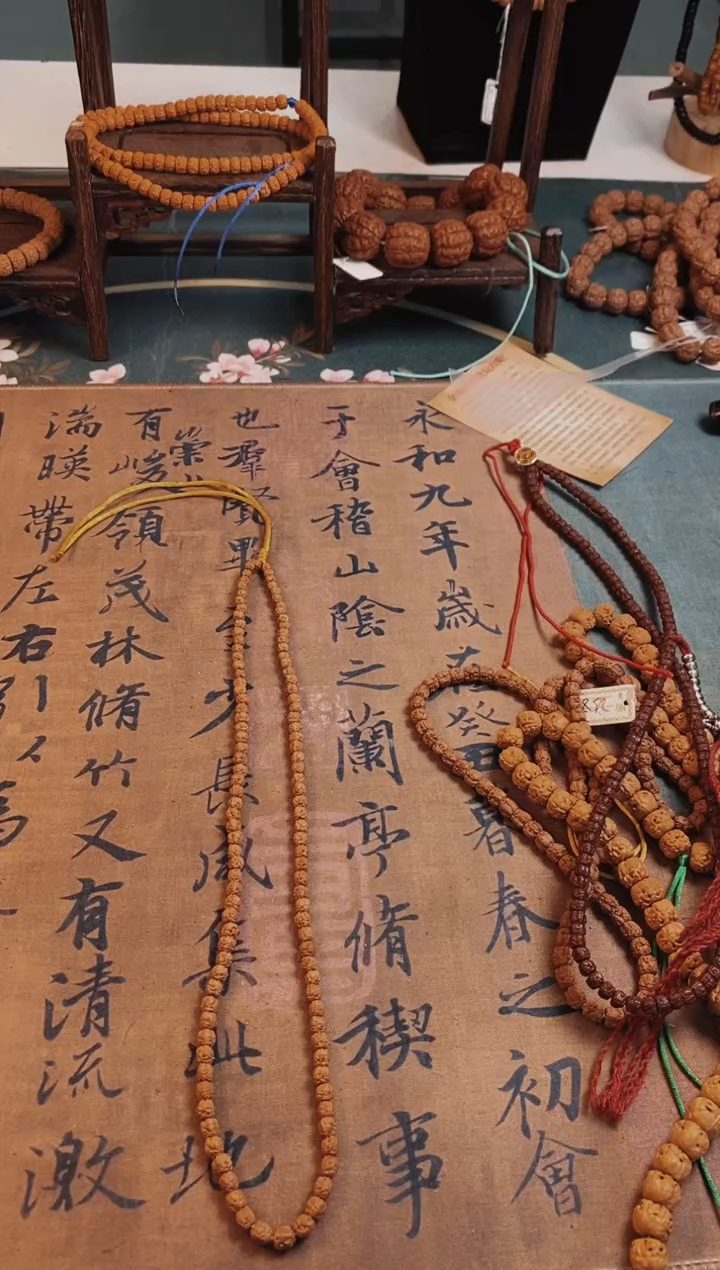 永和九年歲在癸丑暮春之初會
于會稽山陰之蘭亭脩稧事
也羣賢畢至少長咸集此地
有崇山峻領茂林脩竹又有清流激
湍暎帶左右引以為